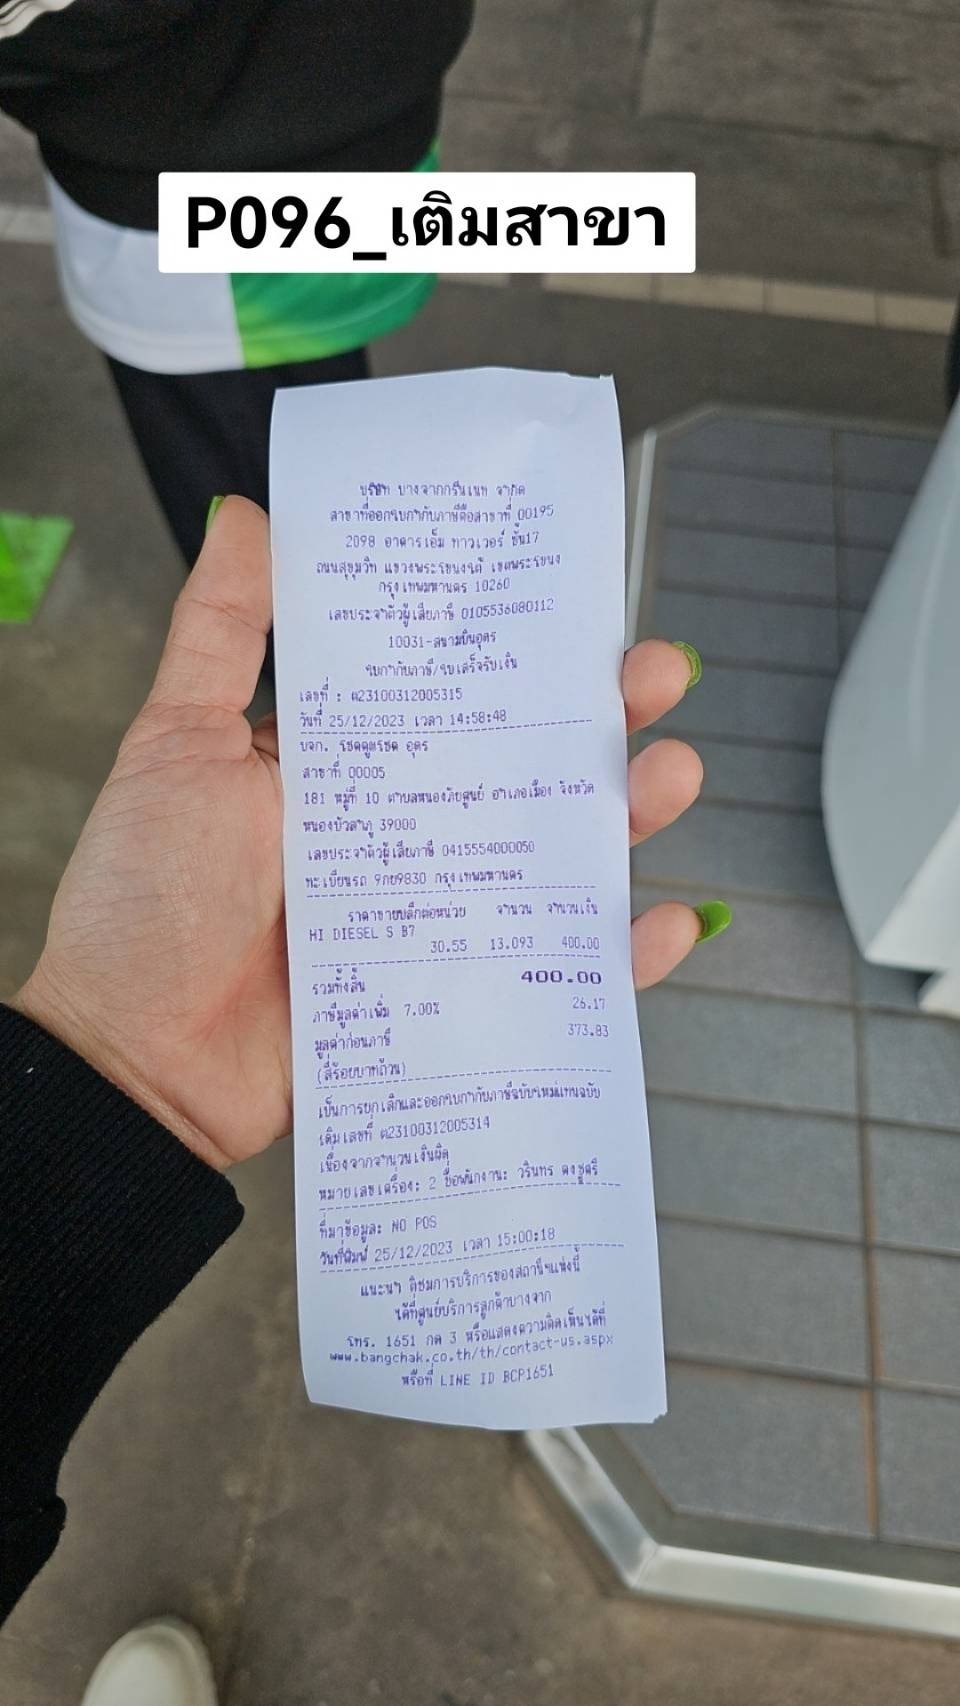 P096_เติมสาขา
บริษัท บางจากกรีนเนท จำกัด
สาขาที่ออกใบกำกับภาษีคือสาขาที่ 00195
2098 อาคารเอ็ม ทาวเวอร์ ชั้น17
ถนนสุขุมวิท แขวงพระโขนงใต้ เขตพระโขนง
กรุงเทพมหานคร 10260
เลขประจำตัวผู้เสียภาษี 0105536080112
10031-สนามบินอุดร
ใบกำกับภาษี/ใบเสร็จรับเงิน
เลขที่ : ต23100312005315
วันที่ 25/12/2023 เวลา 14:58:48
บจก. โชคคูณโชค อุดร
สาขาที่ 00005
181 หมู่ที่ 10 ตำบลหนองภัยศูนย์ อำเภอเมือง จังหวัด
หนองบัวลำภู 39000
เลขประจำตัวผู้เสียภาษี 0415554000050
ทะเบียนรถ 9กย9830 กรุงเทพมหานคร
ราคาขายปลีกต่อหน่วย จำนวน จำนวนเงิน
HI DIESEL S B7
30.55 13.093 400.00
รวมทั้งสิ้น 400.00
ภาษีมูลค่าเพิ่ม 7.00% 26.17
มูลค่าก่อนภาษี 373.83
(สี่ร้อยบาทถ้วน)
เป็นการยกเลิกและออกใบกำกับภาษีฉบับใหม่แทนฉบับ
เดิมเลขที่ ต23100312005314
เนื่องจากจำนวนเงินผิด
หมายเลขเครื่อง: 2 ชื่อพนักงาน: วรินทร คงชูศรี
ที่มาข้อมูล: NO POS
วันที่พิมพ์ 25/12/2023 เวลา 15:00:18
แนะนำ ติชมการบริการของสถานีฯแห่งนี้
ได้ที่ศูนย์บริการลูกค้าบางจาก
โทร. 1651 กด 3 หรือแสดงความคิดเห็นได้ที่
www.bangchak.co.th/th/contact-us.aspx
หรือที่ LINE ID BCP1651